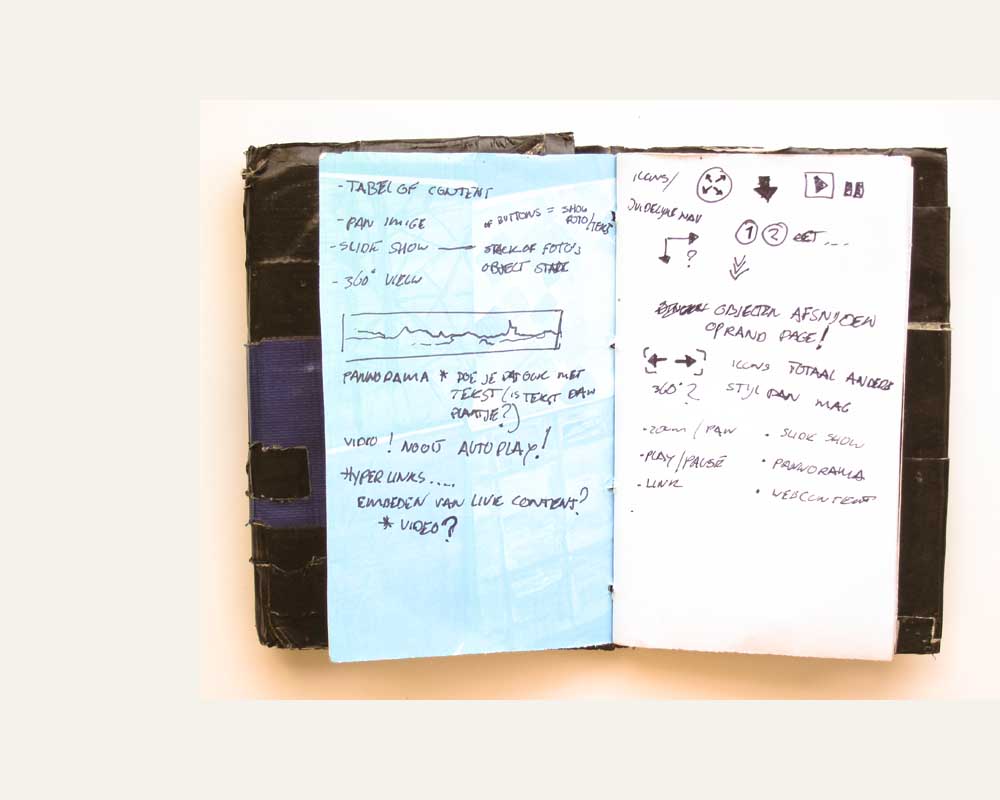 - TABEL OF CONTENT
- PAN IMAGE
OF BUTTONS = SHOW FOTO/TEKST
- SLIDE SHOW — STACK OF FOTO'S
OBJECT
- 360° VIEW
PANNORAMA * DOE JE DAT OOK MET
TEKST (IS TEKST DAN
PLAATJE?)
VIDEO! NOOIT AUTOPLAY!
HYPERLINKS....
EMBEDEN VAN LIVE CONTENT?
* VIDEO?
ICONS/
DUIDELIJKE NAV
?
1 2 ECT....
OBJECTEN AFSNIJDEN
OP RAND PAGE!
ICONS TOTAAL ANDERE
360°?
STIJL DAN MAG
- ZOOM / PAN
- PLAY/PAUSE
- LINK
• SLIDE SHOW
• PANNORAMA
• WEBCONTENT